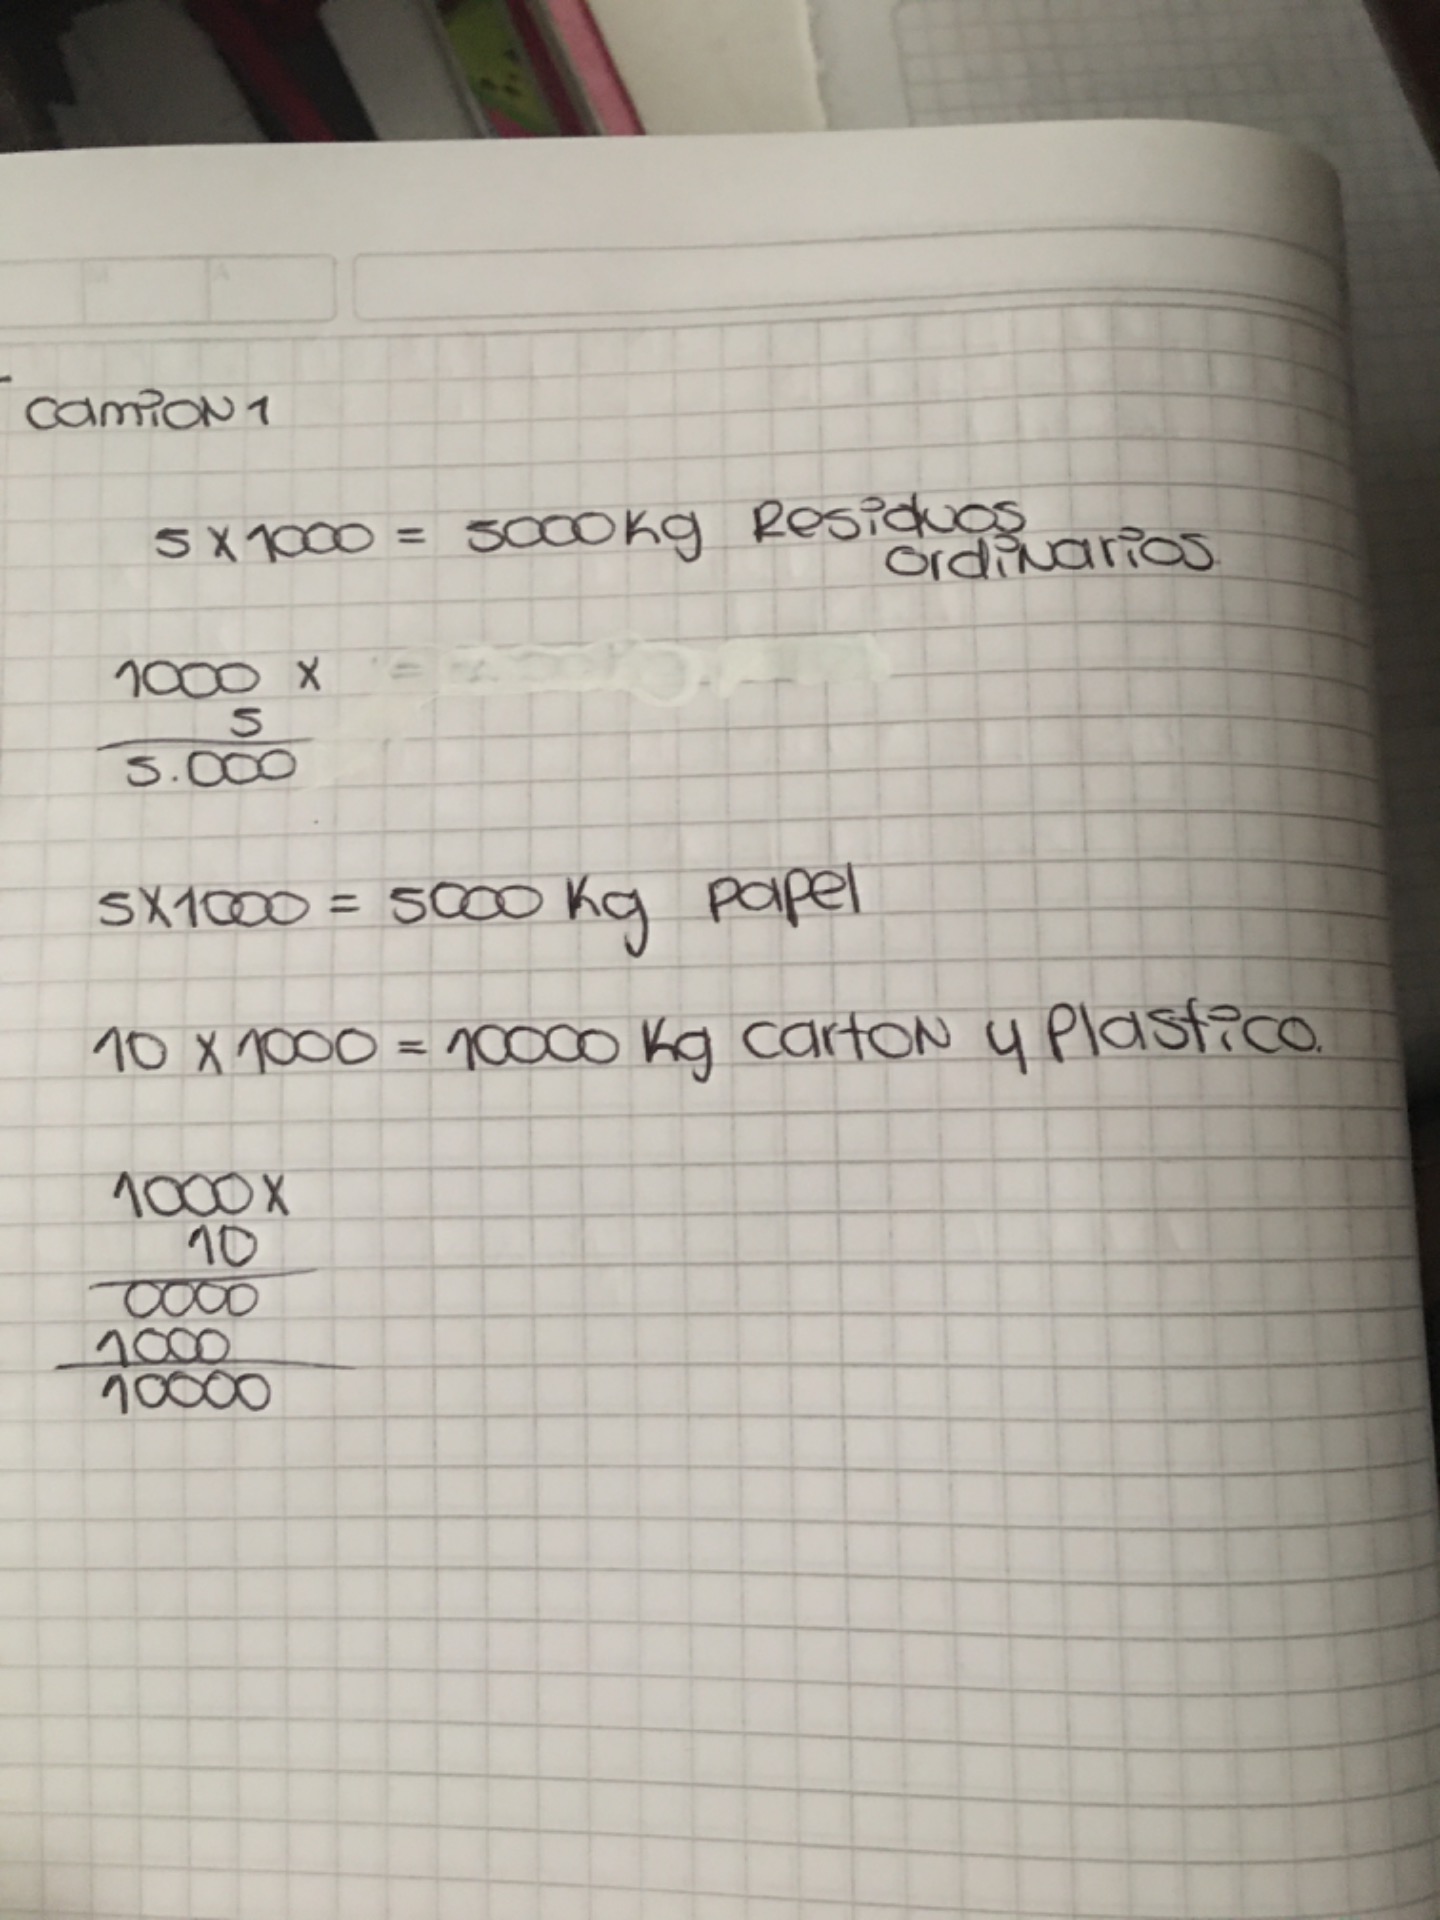 M A
camion 1
5 x 1000 = 5000 Kg Residuos
ordinarios
1000 x
5
5.000
5x1000 = 5000 Kg papel
10 x 1000 = 10000 Kg carton y Plastico.
1000x
10
0000
1000
10000